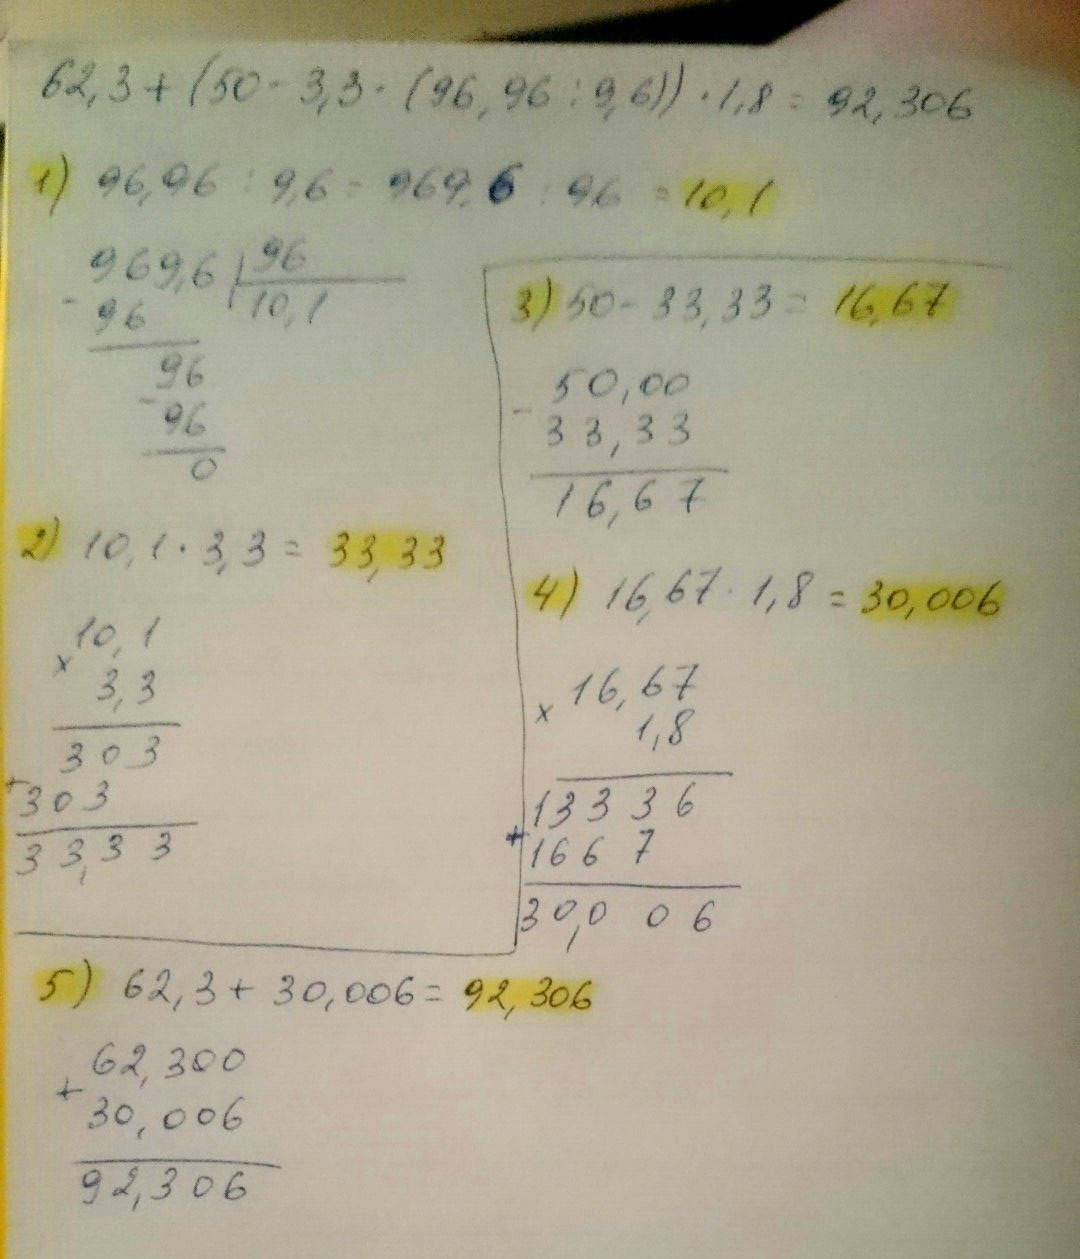 62,3 + (50 - 3,3 · (96,96 : 9,6)) · 1,8 = 92,306
1) 96,96 : 9,6 = 969,6 : 96 = 10,1
969,6 | 96
- 96 10,1
96
- 96
0
2) 10,1 · 3,3 = 33,33
10,1
x 3,3
303
+ 303
33,33
3) 50 - 33,33 = 16,67
50,00
- 33,33
16,67
4) 16,67 · 1,8 = 30,006
16,67
x 1,8
13336
+ 1667
30,006
5) 62,3 + 30,006 = 92,306
62,300
+ 30,006
92,306